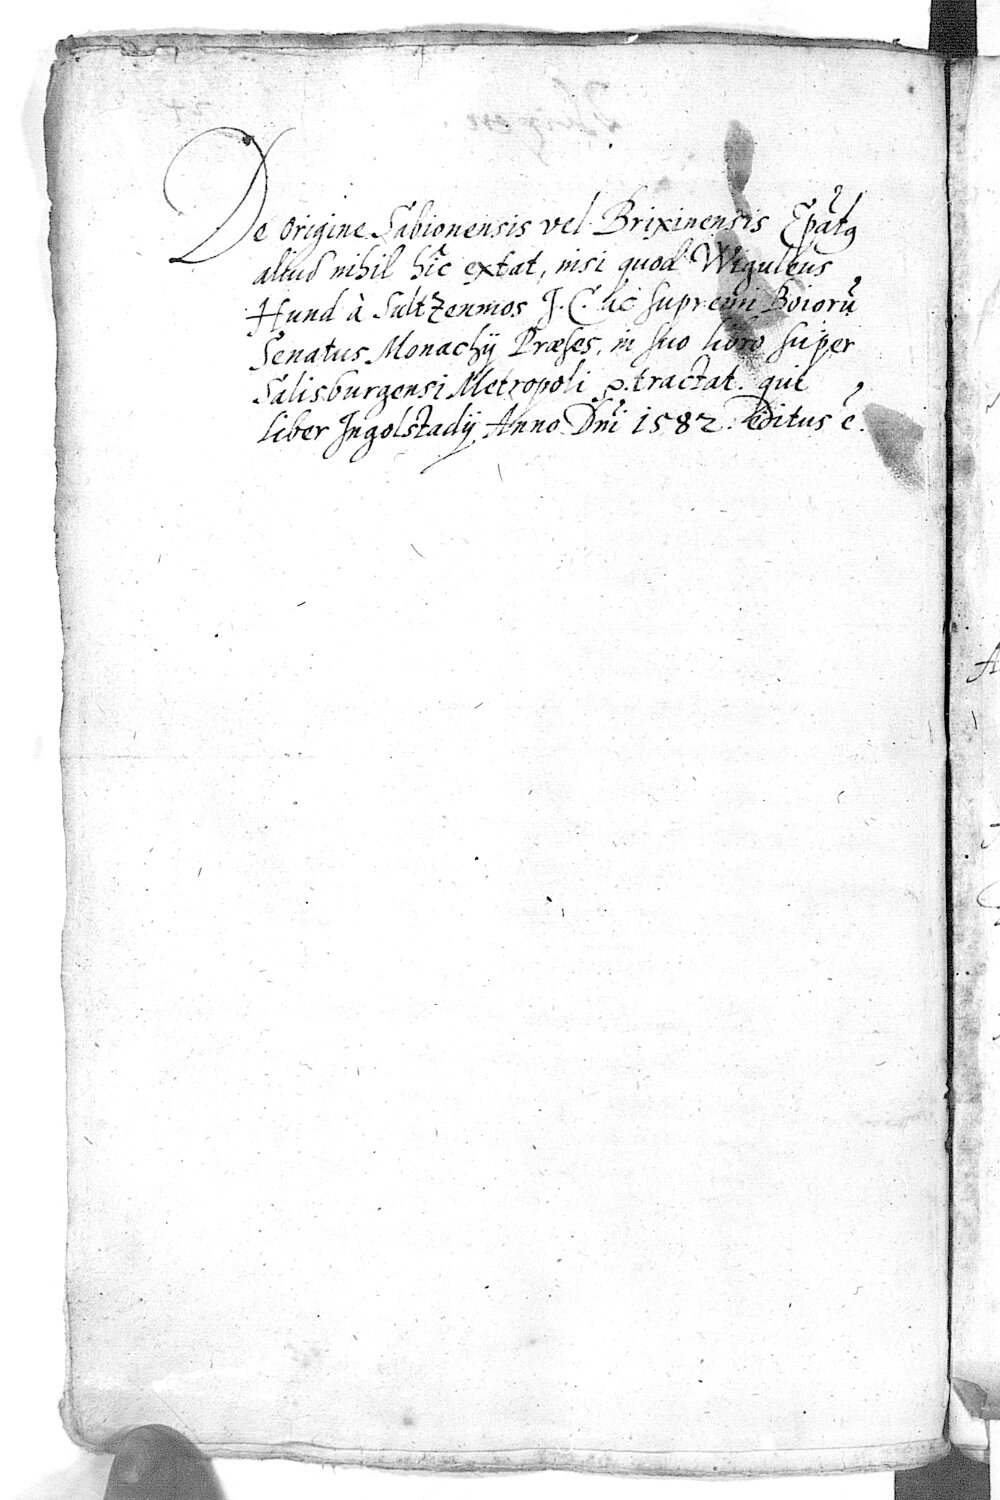 De origine Sabionensis vel Brixinensis Ep̃atꝰ
aliud nihil hîc extat, nisi quod Wiguleus
Hund à Sultzenmos J. C. ac supremi Boiorũ
Senatus Monachij Præses, in suo libro super
Salisburgensi Metropoli ꝑtractat. qui
liber Ingolstadij Anno Dñi 1582. editus ẽ.